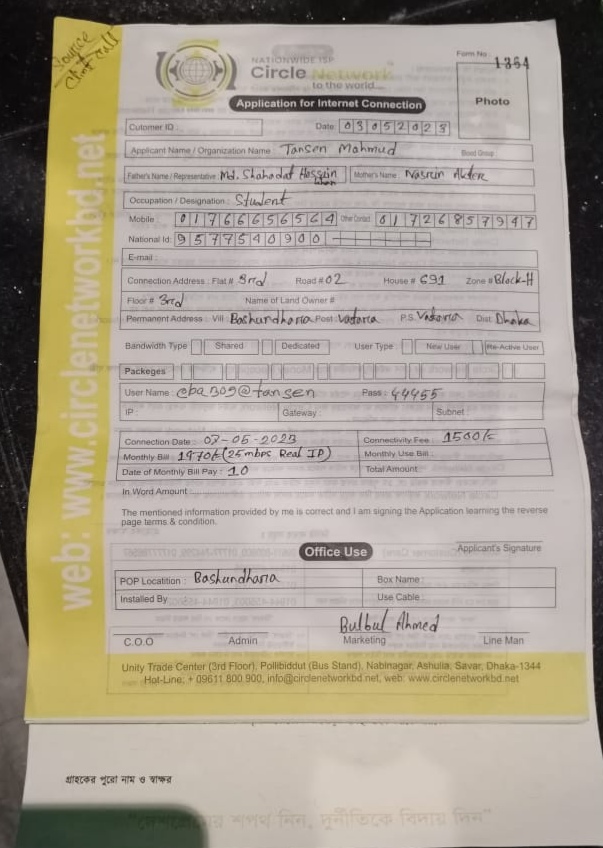 Source
Client Call
NATIONWIDE ISP
Circle Network
to the world...
Form No : 1364
Photo
Application for Internet Connection
Cutomer ID :
Date: 03052023
Applicant Name / Organization Name : Tansen Mahmud Blood Group :
Father's Name / Representative : Md. Shahadat Hossain Mother's Name : Nasrin Akter
Occupation / Designation : Student
Mobile : 01766656564 Other Contact : 01726857947
National Id: 9577540900
E-mail :
Connection Address : Flat # 3rd Road # 02 House # 691 Zone # Block-H
Floor # 3rd Name of Land Owner #
Permanent Address : Vill : Bashundhara Post : Vatara P.S. Vatara Dist: Dhaka
Bandwidth Type Shared Dedicated User Type : New User Re-Active User
Packeges
User Name : @tansen Pass : 44455
IP : Gateway : Subnet :
Connection Date : 07-05-2023 Connectivity Fee : 1500/-
Monthly Bill : (25mbps Real IP) Monthly Use Bill :
Date of Monthly Bill Pay : 10 Total Amount :
In Word Amount
The mentioned information provided by me is correct and I am signing the Application learning the reverse
page terms & condition.
Applicant's Signature
Office Use
POP Locatition : Bashundhara Box Name :
Installed By Use Cable :
Bulbul Ahmed
C.O.O Admin Marketing Line Man
Unity Trade Center (3rd Floor), Pollibiddut (Bus Stand), Nabinagar, Ashulia, Savar, Dhaka-1344
Hot-Line: + 09611 800 900, info@circlenetworkbd.net, web: www.circlenetworkbd.net
web: www.circlenetworkbd.net
গ্রাহকের পুরো নাম ও স্বাক্ষর
শপথ নিন, দুর্নীতিকে বিদায় দিন"